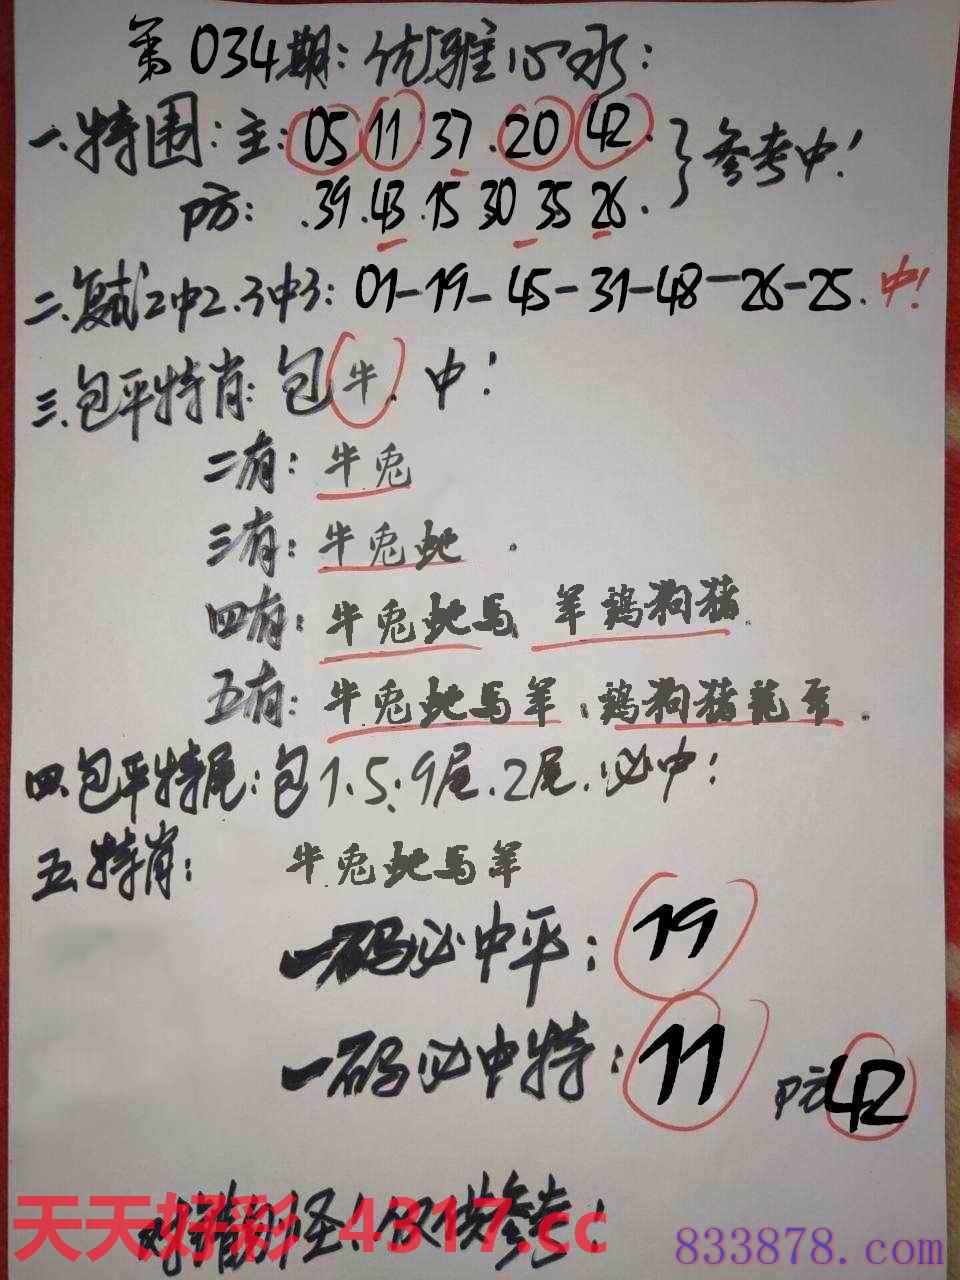 第034期:优雅心水:
一.特围:主:05 11 37.20 42.}参考中!
防: .39.43.15 30 35 26.
二.复式2中2.3中3: 01-19-45-31-48-26-25.中!
三.包平特肖:包牛.中!
二有:牛兔
三有:牛兔蛇.
四有:牛兔蛇马 羊鸡狗猪.
五有:牛兔蛇马羊.鸡狗猪龙.
四.包平特尾:包1.5.9尾.2尾.必中!
五.特肖: 牛兔蛇马羊
一码必中平:19
一码必中特:11 防42
对错勿怪!仅供参考!
天天好彩 4317.cc
833878.com